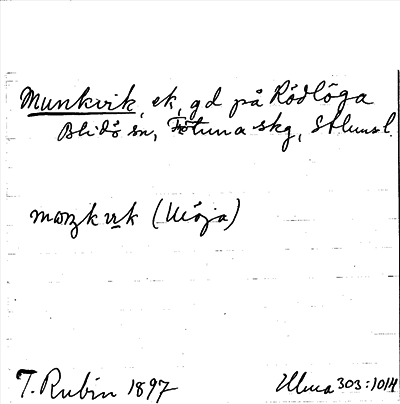 Munkvik, ek, gd på Rödlöga
Blidö sn, Frötuna skg, Sthmsl.
(Möja)
T. Rubin 1897
Ulma 303:1014